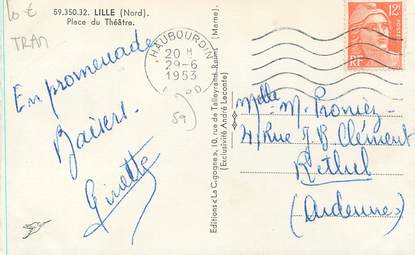 10 €
TRAM
59.350.32. LILLE (Nord).
Place du Théâtre.
En promenade
Baisers.
Ginette
HAUBOURDIN
20 H
29-6
1953
NORD
59)
Editions « La Cigogne », 10, rue de Talleyrand, Reims (Marne).
(Exclusivité André Leconte)
12F
RF
Melle M.
4 Rue J B Clément
Rethel
(Ardenne)